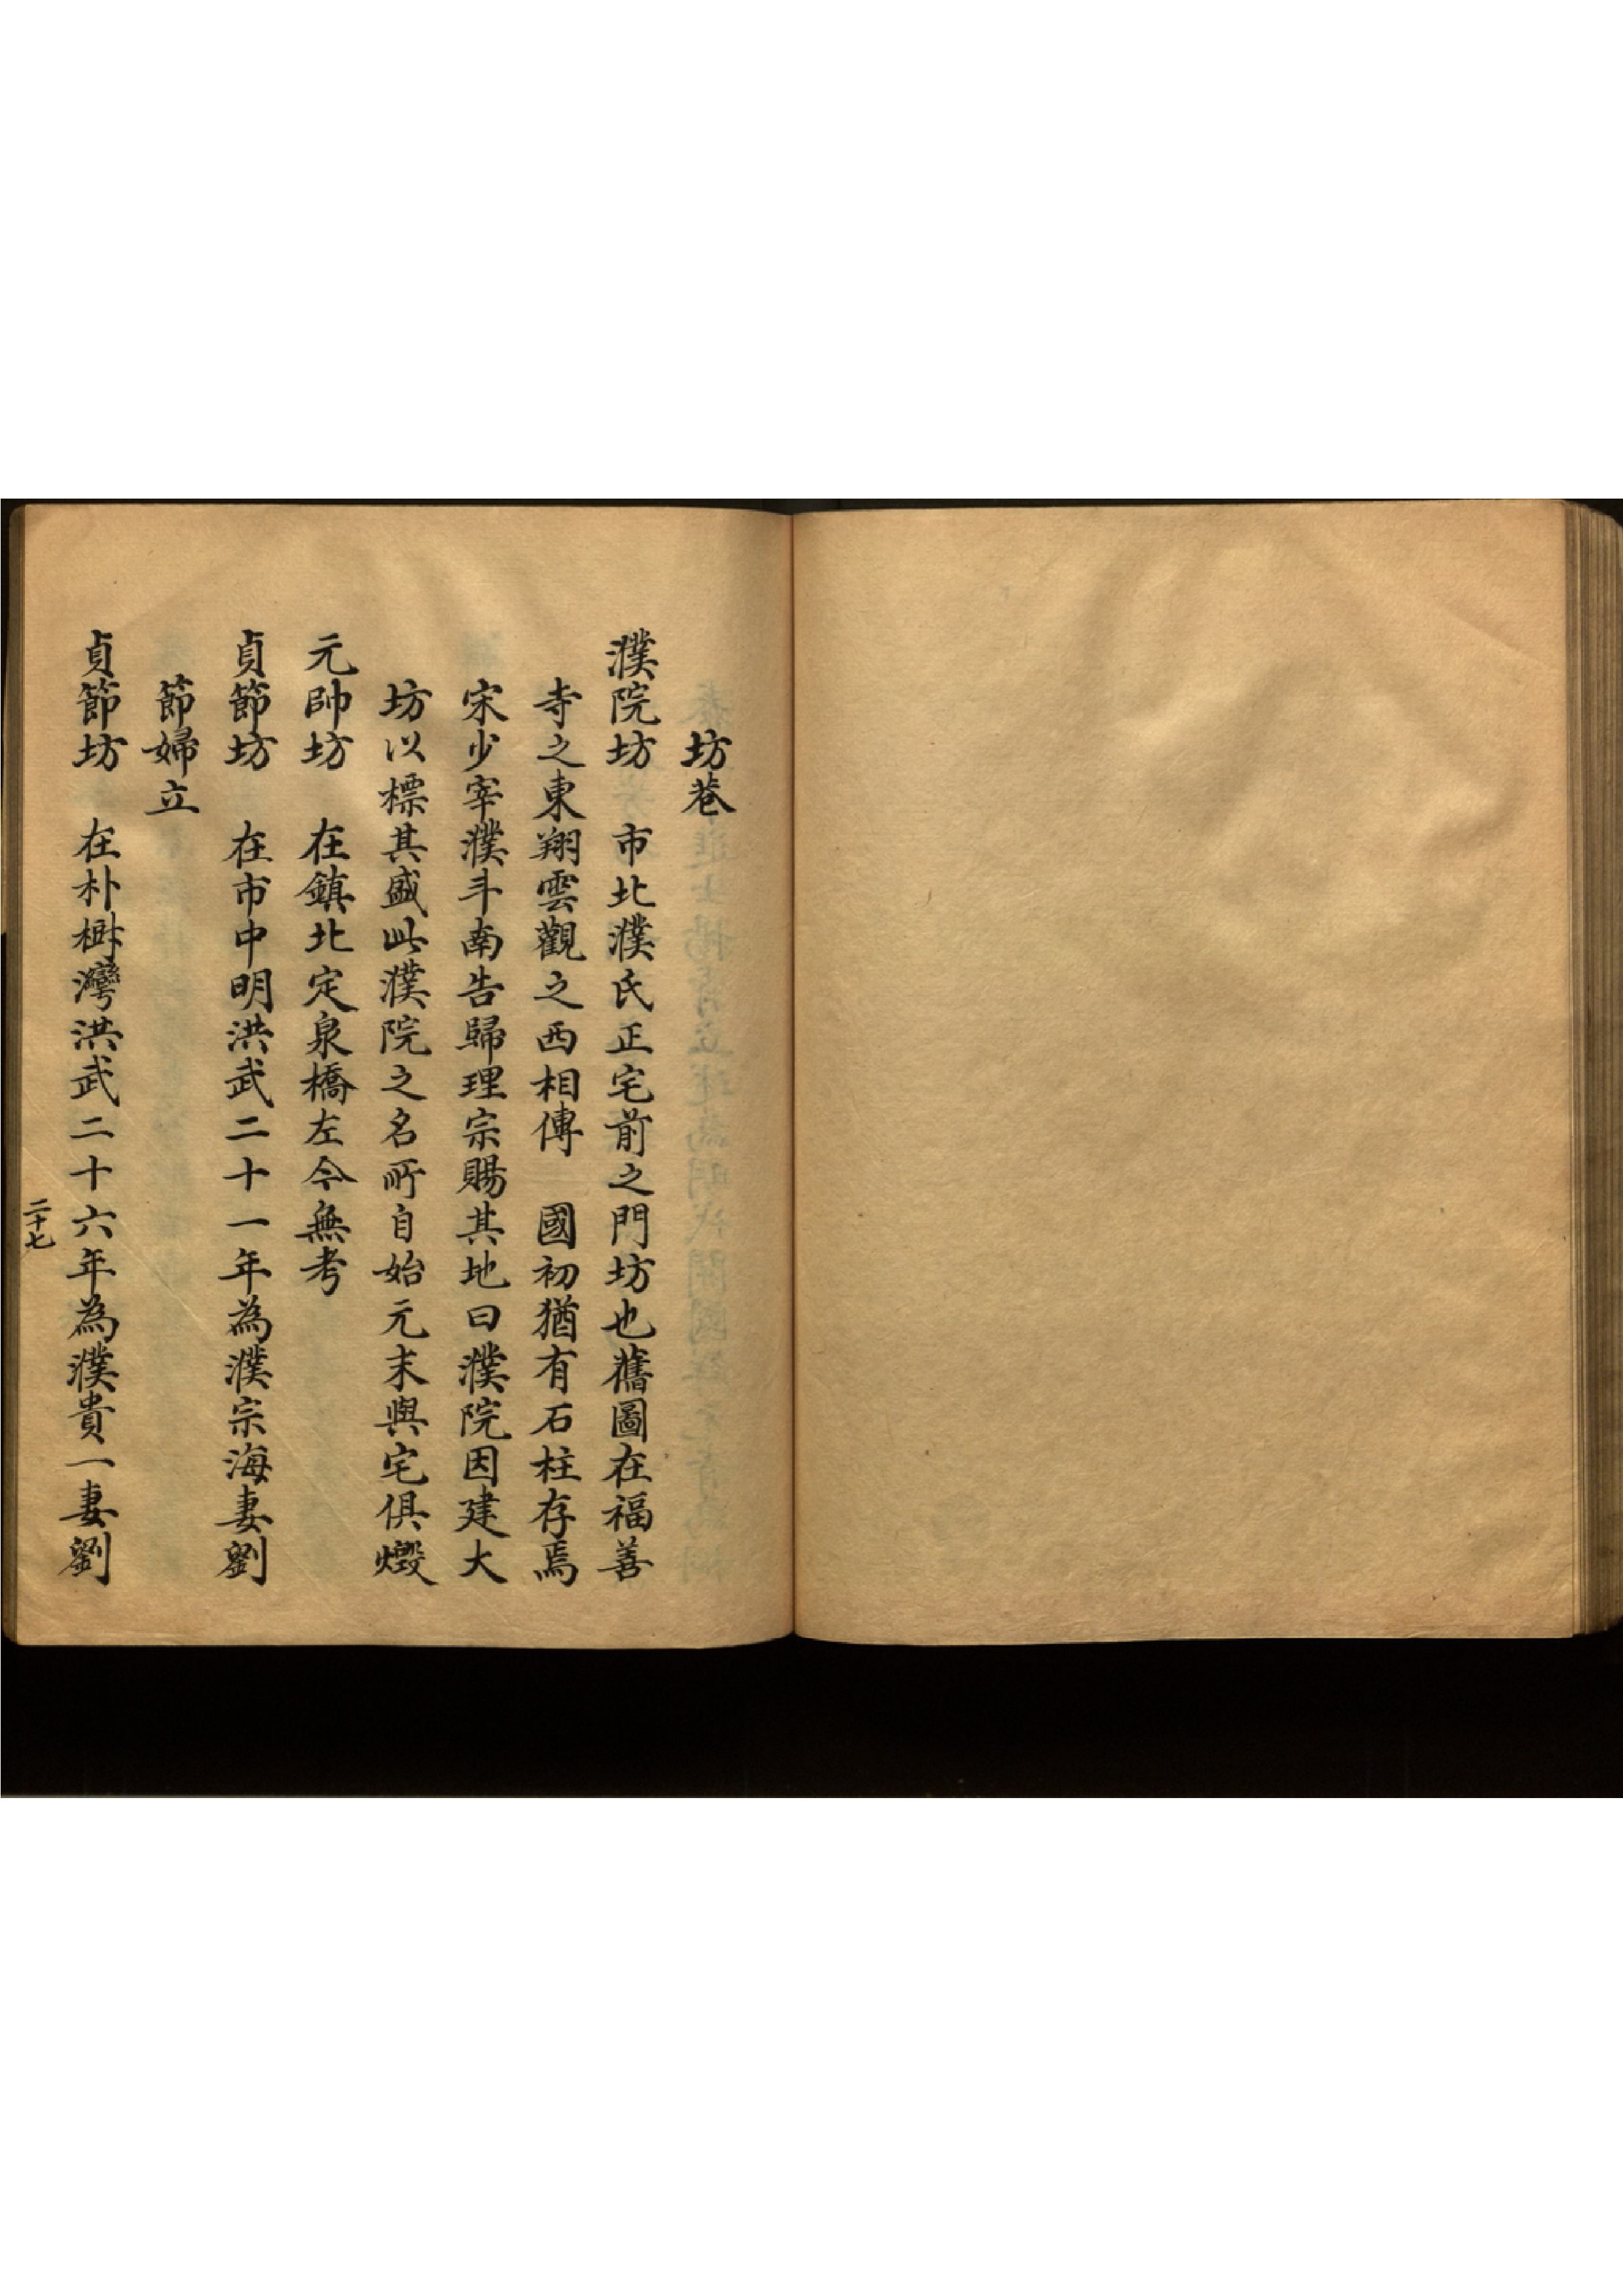 坊巷
濮院坊　市北濮氏正宅前之門坊也舊圖在福善
寺之東翔雲觀之西相傳　國初猶有石柱存焉
宋少宰濮斗南告歸理宗賜其地曰濮院因建大
坊以標其盛此濮院之名所自始元末與宅俱燬
元帥坊　在鎮北定泉橋左今無考
貞節坊　在市中明洪武二十一年為濮宗海妻劉
節婦立
貞節坊　在朴樹灣洪武二十六年為濮貴一妻劉
二十七